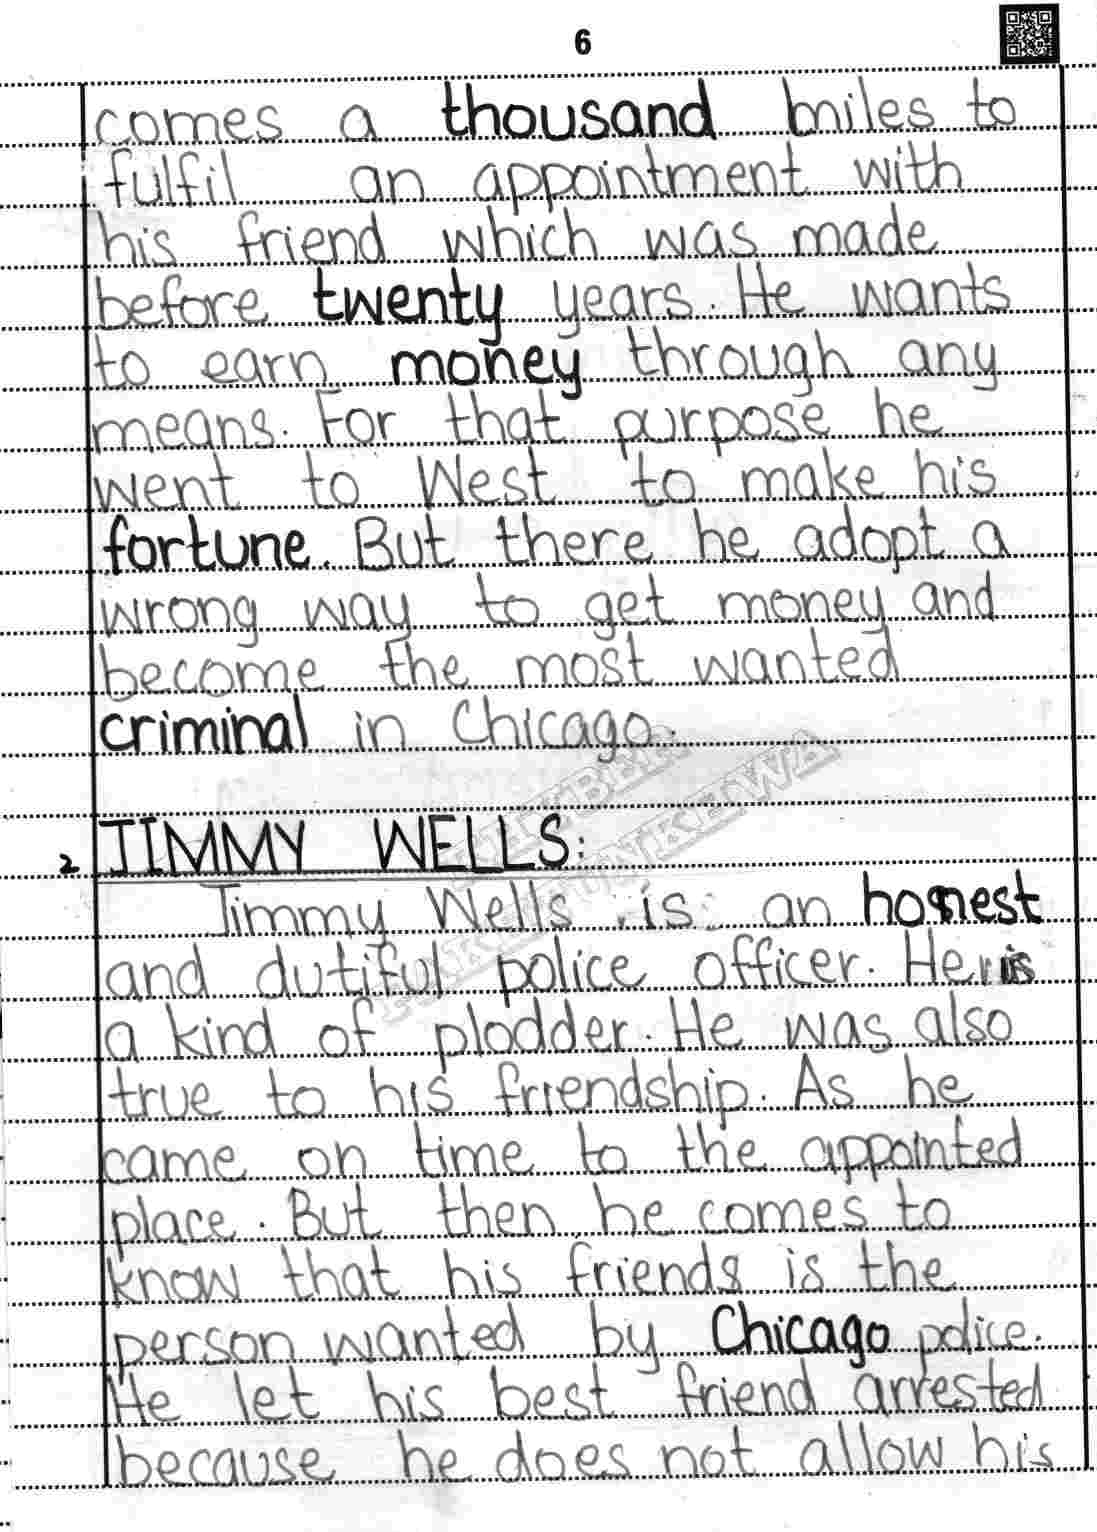 6
comes a thousand miles to
fulfil an appointment with
his friend which was made
before twenty years. He wants
to earn money through any
means. For that purpose he
went to West to make his
fortune. But there he adopt a
wrong way to get money and
become the most wanted
criminal in Chicago.
2 JIMMY WELLS:
Jimmy Wells is an honest
and dutiful police officer. He is
a kind of plodder. He was also
true to his friendship. As he
came on time to the appointed
place. But then he comes to
know that his friends is the
person wanted by Chicago police.
He let his best friend arrested
because he does not allow his